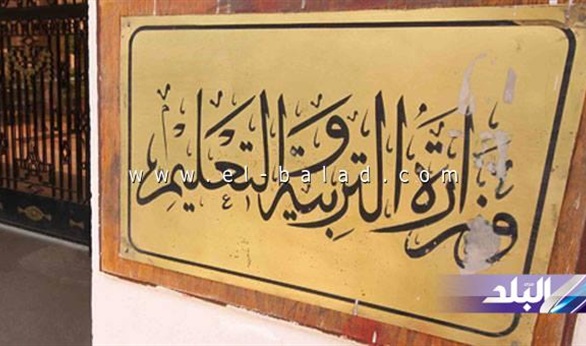 وزارة التربية والتعليم
www.el-balad.com
صدى البلد